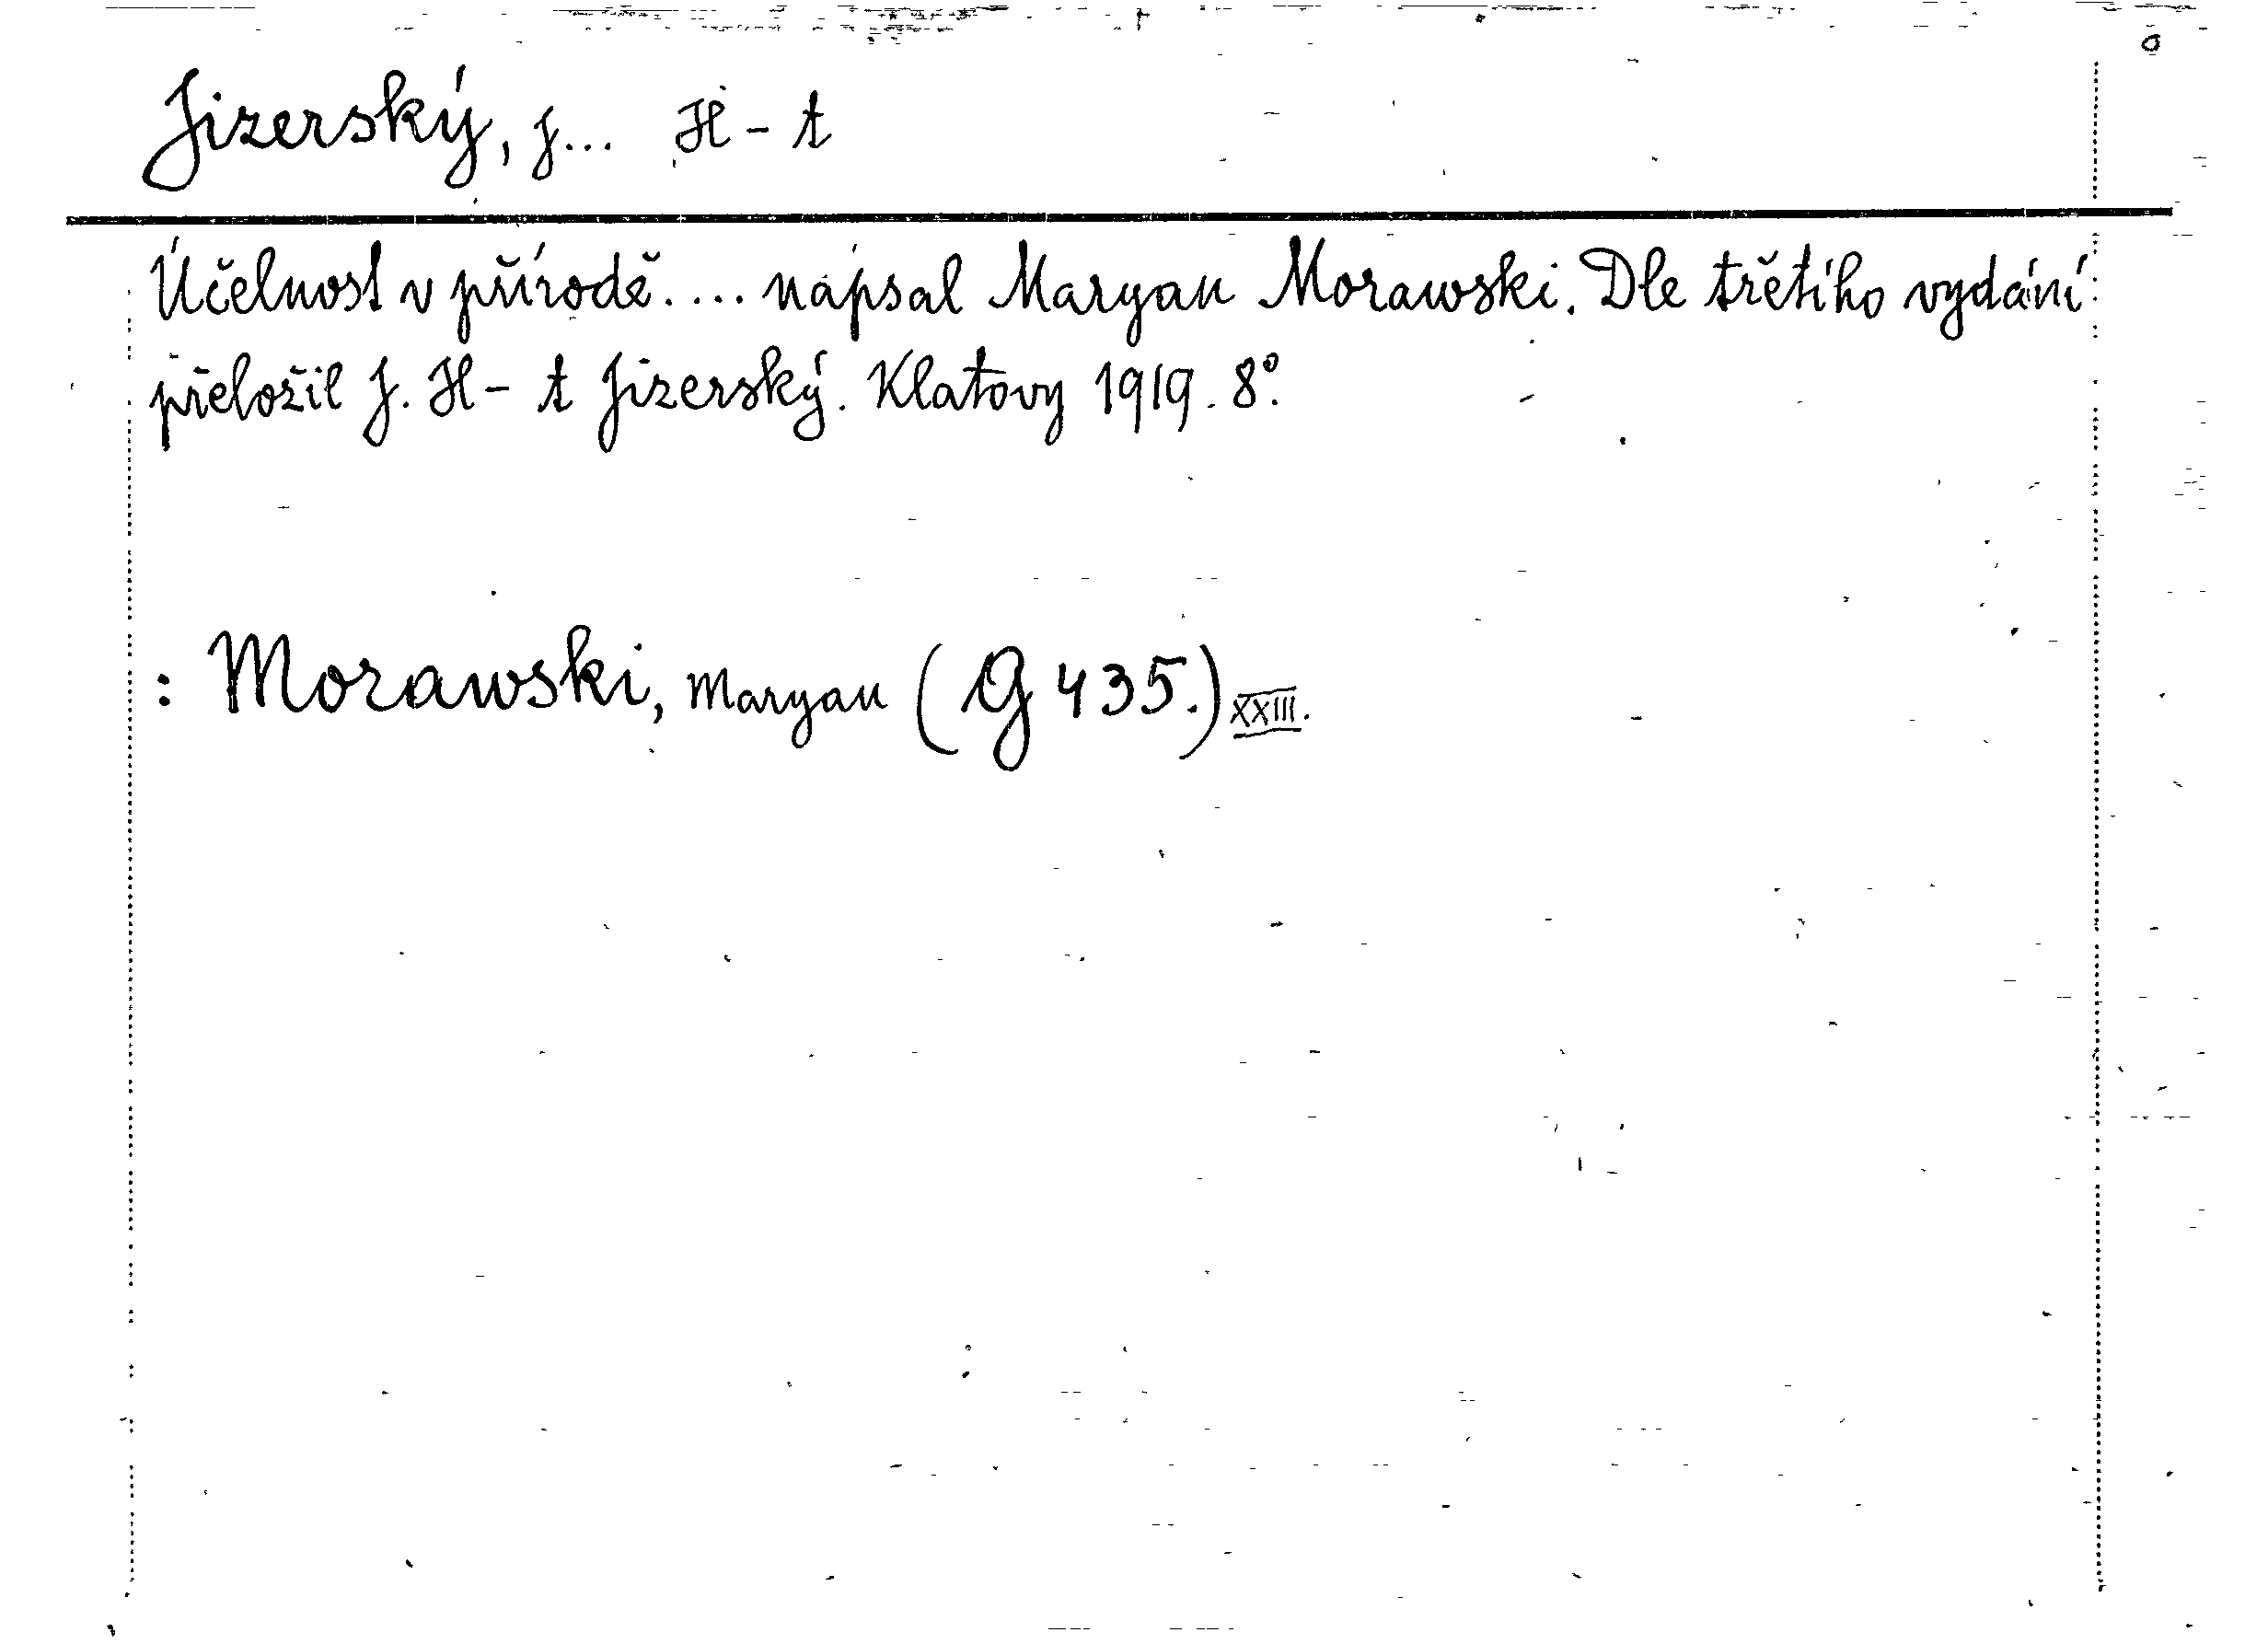 Jizerský, J... H - t
Účelnost v přírodě.... napsal Maryan Morawski. Dle třetího vydání
přeložil J. H - t Jizerský. Klatovy 1919. 8°.
: Morawski, Maryan (G 435.) XXIII.